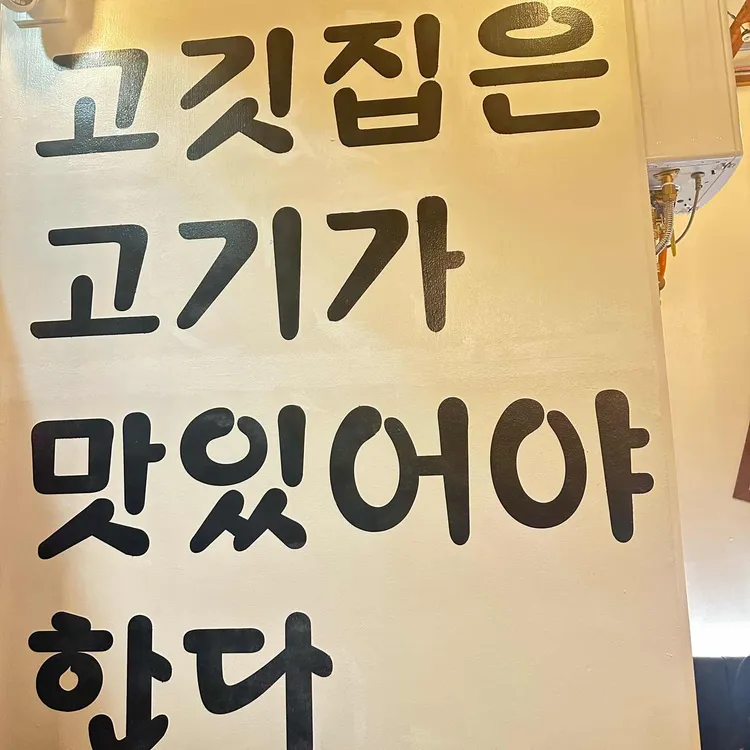 고깃집은
고기가
맛있어야
한다